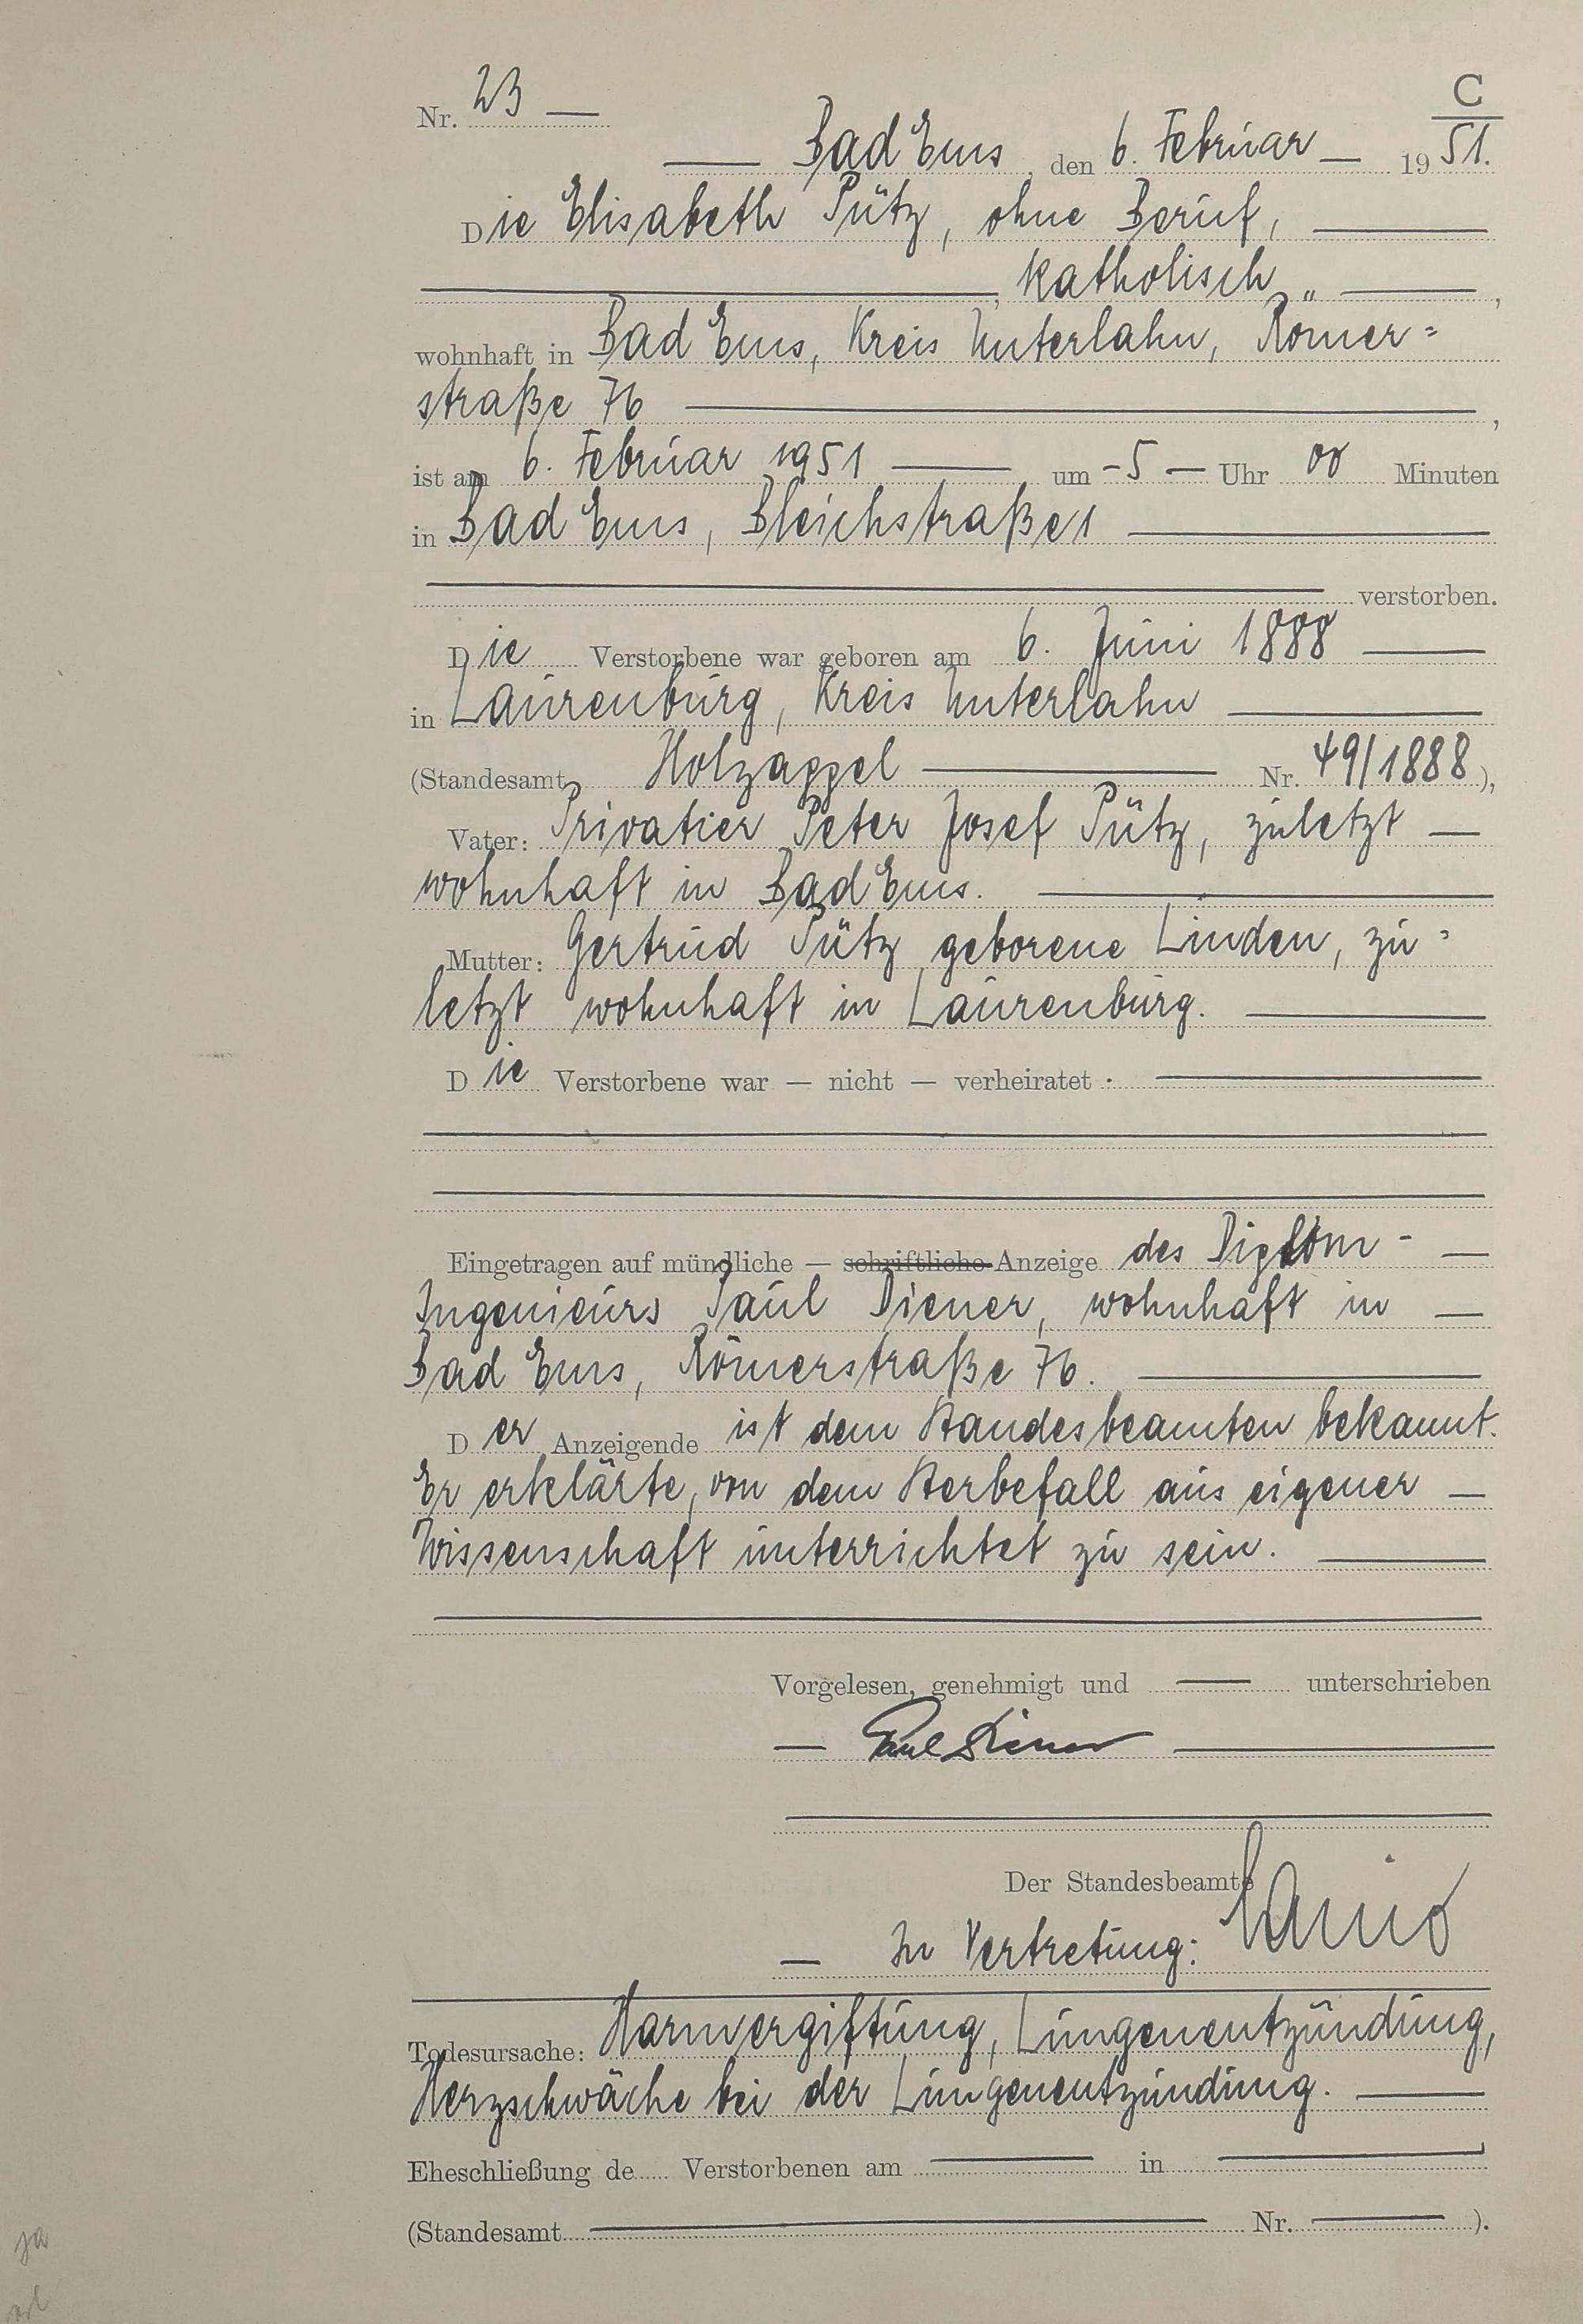 C
Nr. 23 —
— Bad Ems, den 6. Februar — 1951.
Die Elisabeth Pütz, ohne Beruf, —
—, katholisch „ —,
wohnhaft in Bad Ems, Kreis Unterlahn, Römer=
straße 76 —,
ist am 6. Februar 1951 — um - 5 — Uhr 00 Minuten
in Bad Ems, Bleichstraße 1 —
— verstorben.
Die Verstorbene war geboren am 6. Juni 1888 —
in Laurenburg, Kreis Unterlahn —
(Standesamt Holzappel — Nr. 49/1888),
Vater: Privatier Peter Josef Pütz, zuletzt —
wohnhaft in Bad Ems. —
Mutter: Gertrud Pütz geborene Linden, zu=
letzt wohnhaft in Laurenburg. —
Die Verstorbene war — nicht — verheiratet. —
Eingetragen auf mündliche — schriftliche Anzeige des Diplom- —
Ingenieurs Paul Diener, wohnhaft in —
Bad Ems, Römerstraße 76. —
Der Anzeigende ist dem Standesbeamten bekannt.
Er erklärte, von dem Sterbefall aus eigener —
Wissenschaft unterrichtet zu sein. —
Vorgelesen, genehmigt und — unterschrieben
— Paul Diener —
Der Standesbeamte
— In Vertretung:
Todesursache: Harnvergiftung, Lungenentzündung,
Herzschwäche bei der Lungenentzündung. —
Eheschließung de Verstorbenen am — in —
(Standesamt — Nr. —).